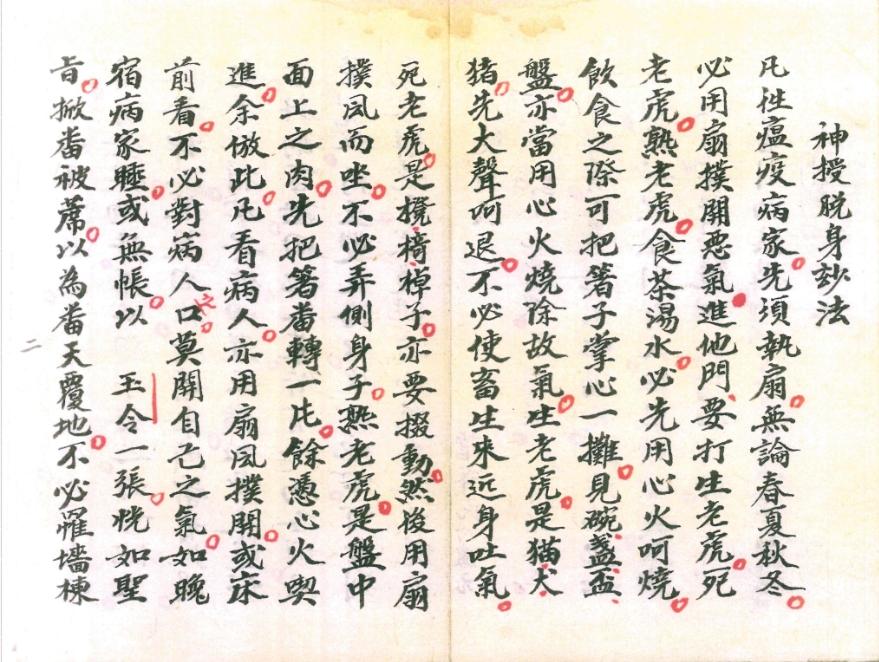 神授脱身妙法
凡徃瘟疫病家先須執扇無論春夏秋冬
必用扇撲開惡氣進他門要打生老虎死
老虎熟老虎食茶湯水必先用心火呵燒
飲食之際可把箸子掌心一攤見碗盞盃
盤亦當用心火燒除故氣生老虎是猫犬
猪先大聲呵退不必使畜生來近身吐氣
死老虎是櫈椅棹子亦要掇動然後用扇
撲風而坐不必弄側身子熟老虎是盤中
面上之肉先把箸畨轉一片餘憑心火喫
進余倣此凡看病人亦用扇風撲開或床
前看不必對病人口莫開自己之氣如晚
宿病家睡或無帳以 玉令一張恍如聖
旨掀畨被蓆以為畨天覆地不必羅墻棟
二